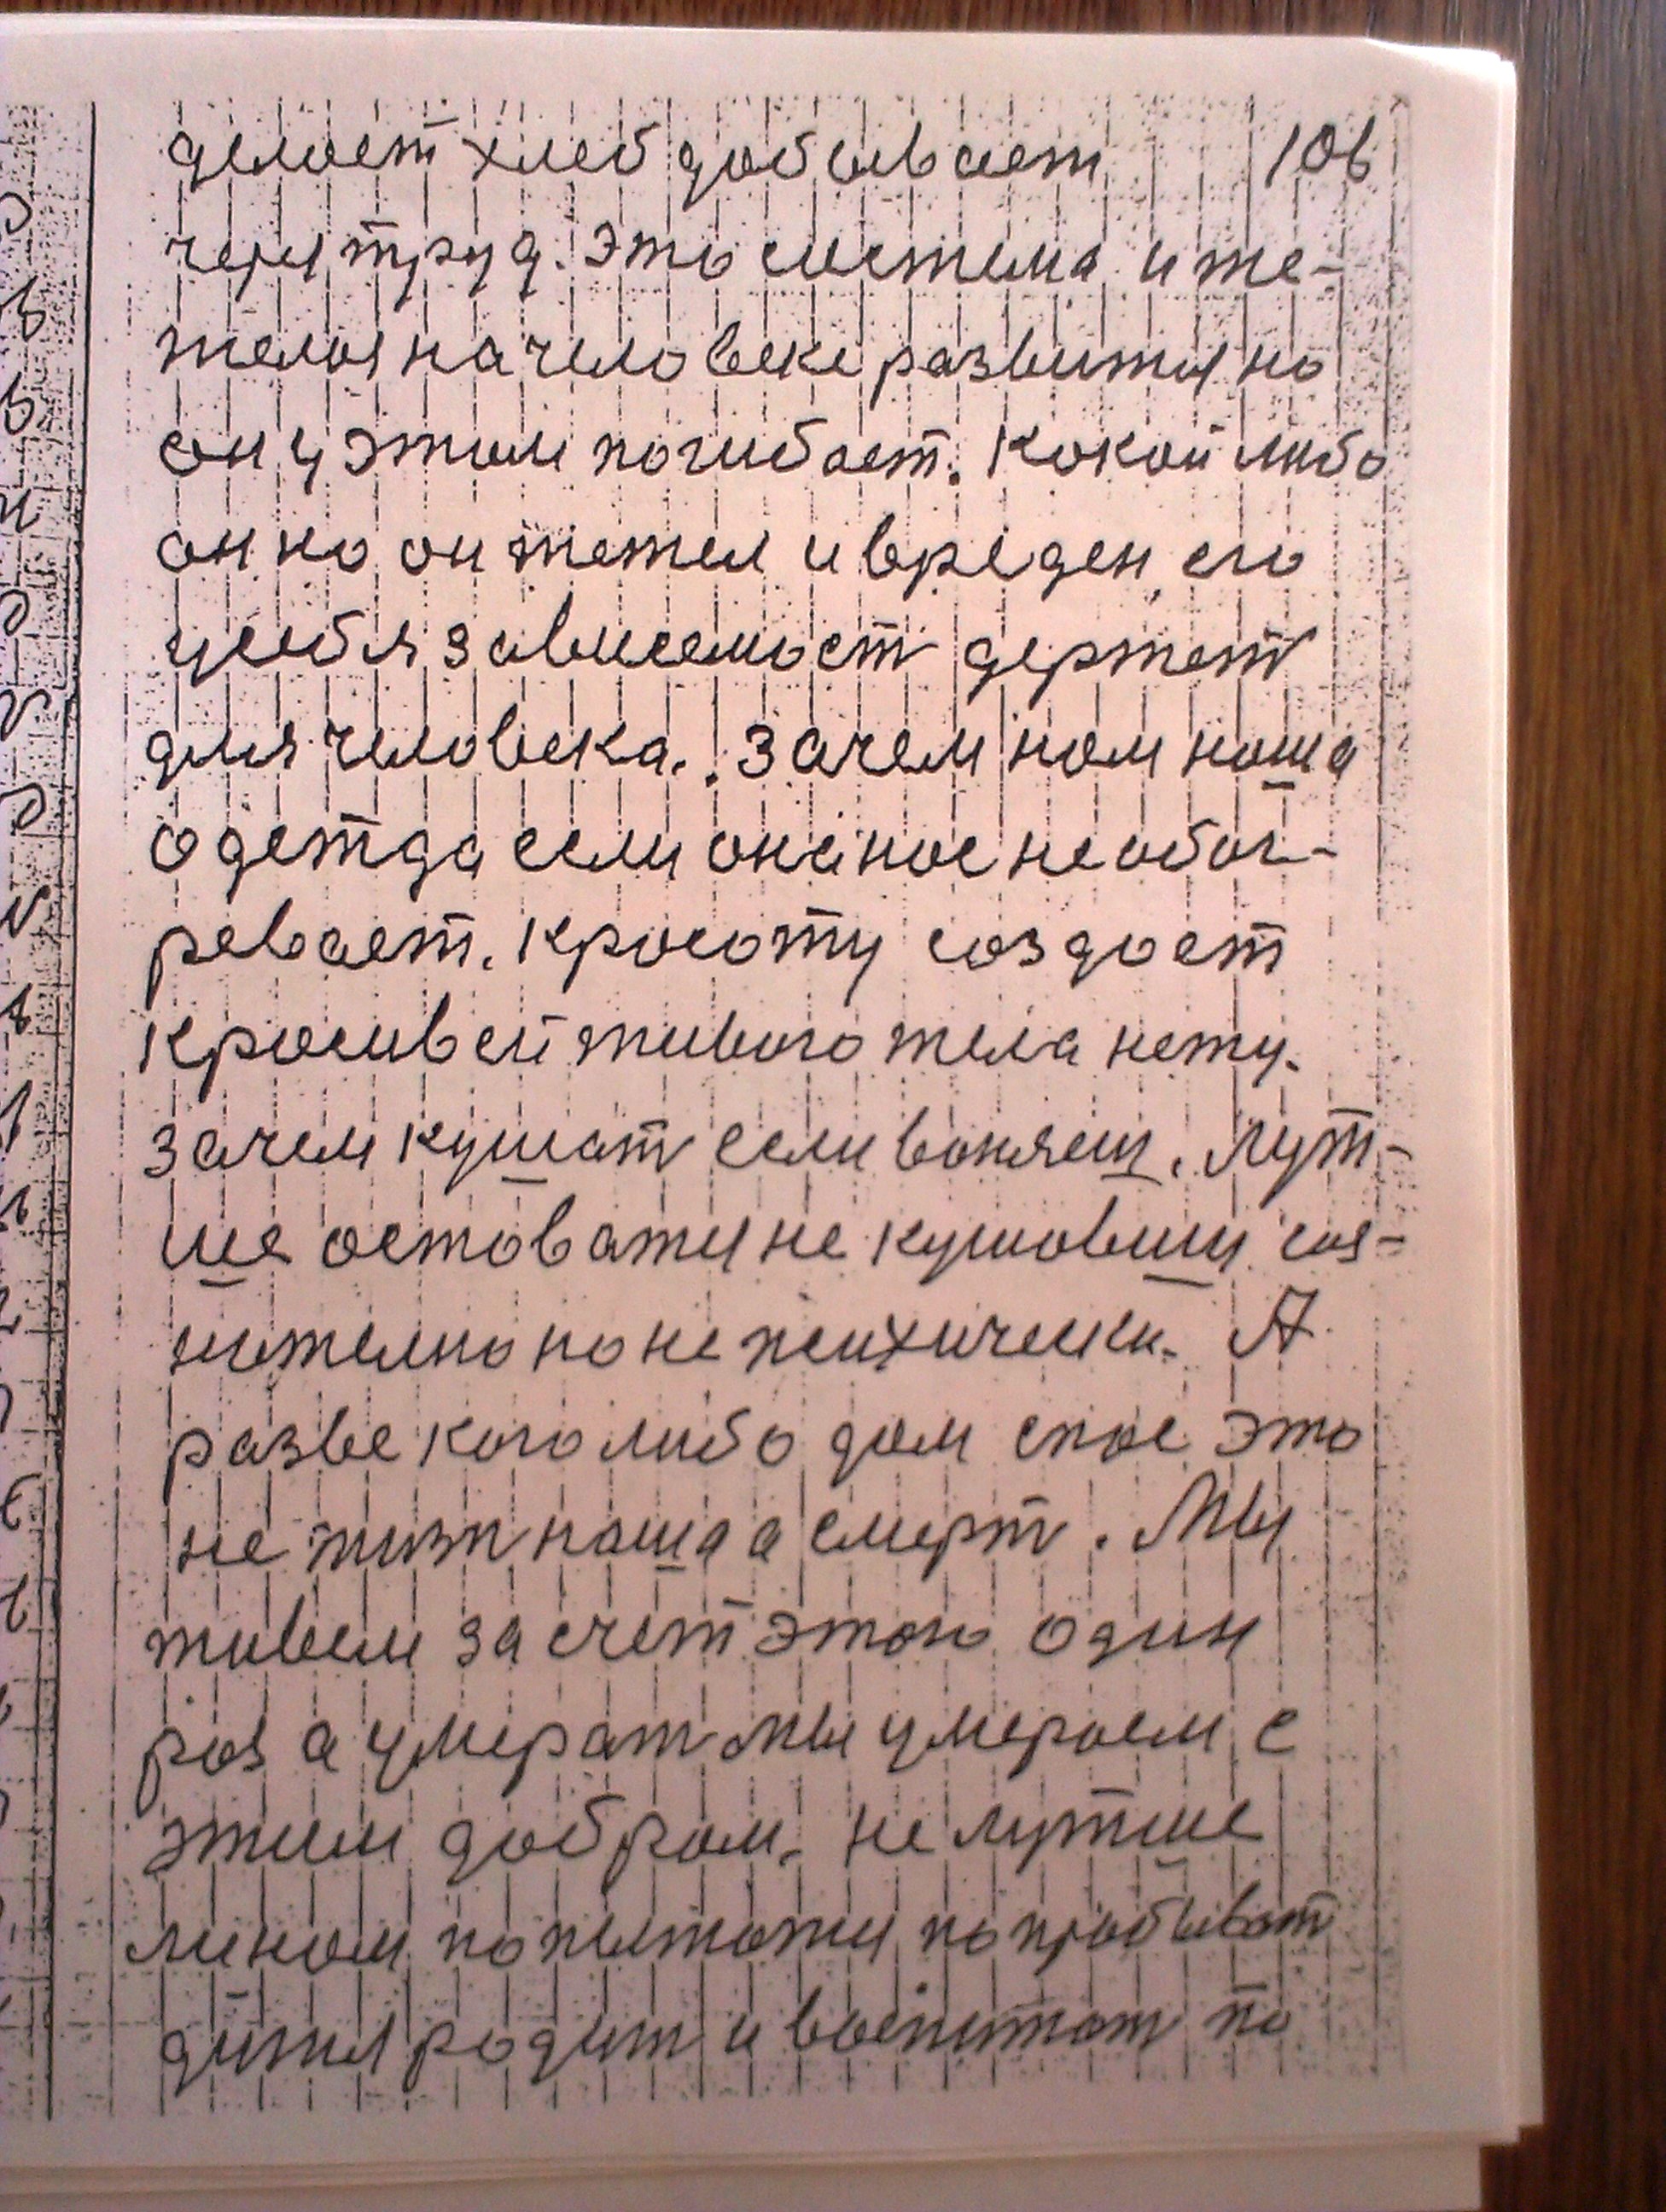 делает хлеб добывает 106
через труд. Это система и тe-
желоя на человеке развитие но
он у этом погибает. Какой либо
он но он тежел и вреден его
уебя зависемост держет
для человека.. Зачем нам наша
одетжда если она нас не обог-
ревает. Красоту создает
красивей живого тела нету.
Зачем кушат если воняеш. Лут-
ше оставатся не кушавши соз-
нително но не психически. А
разве кого либо дом спас это
не жизн наша а смерт. Мы
живем за счет этого один
раз а умерат мы умераем с
этим добром. не лутше
ли нам попытатся попробыват
дитя родит и воспитат по